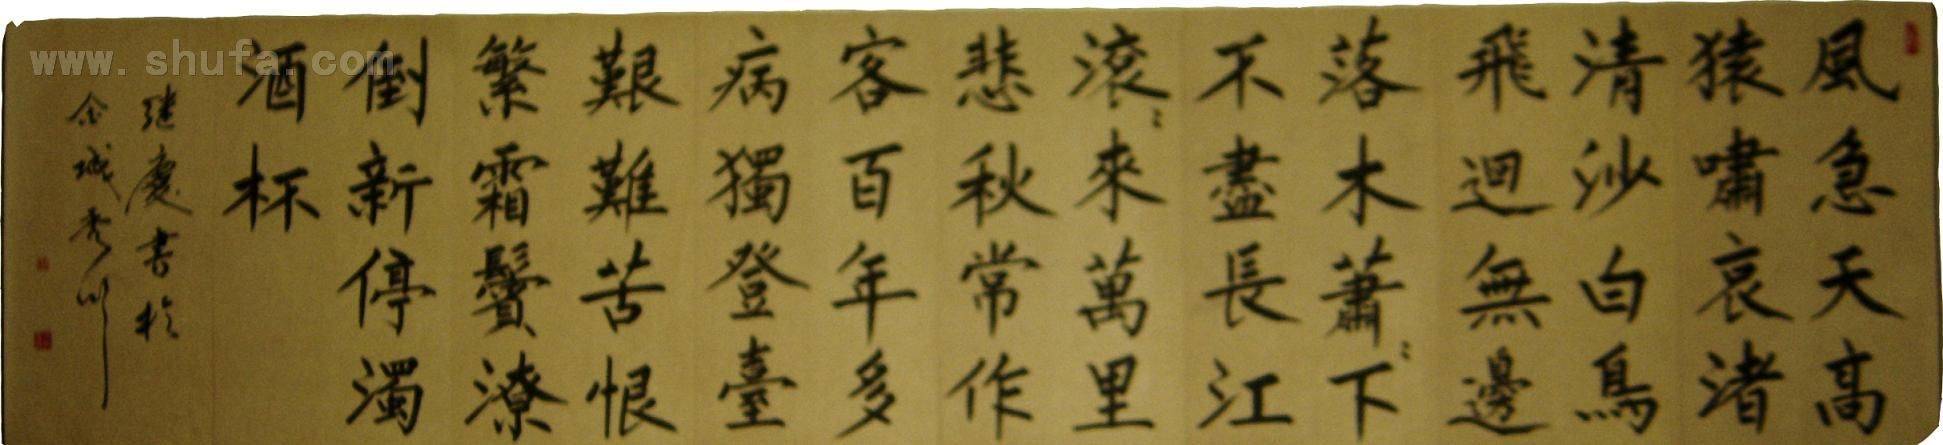 風急天高
猿嘯哀渚
清沙白鳥
飛迴無邊
落木蕭〻下
不盡長江
滾〻來萬里
悲秋常作
客百年多
病獨登臺
艱難苦恨
繁霜鬢潦
倒新停濁
酒杯
继慶書於
金城秀川
www.shufa.com